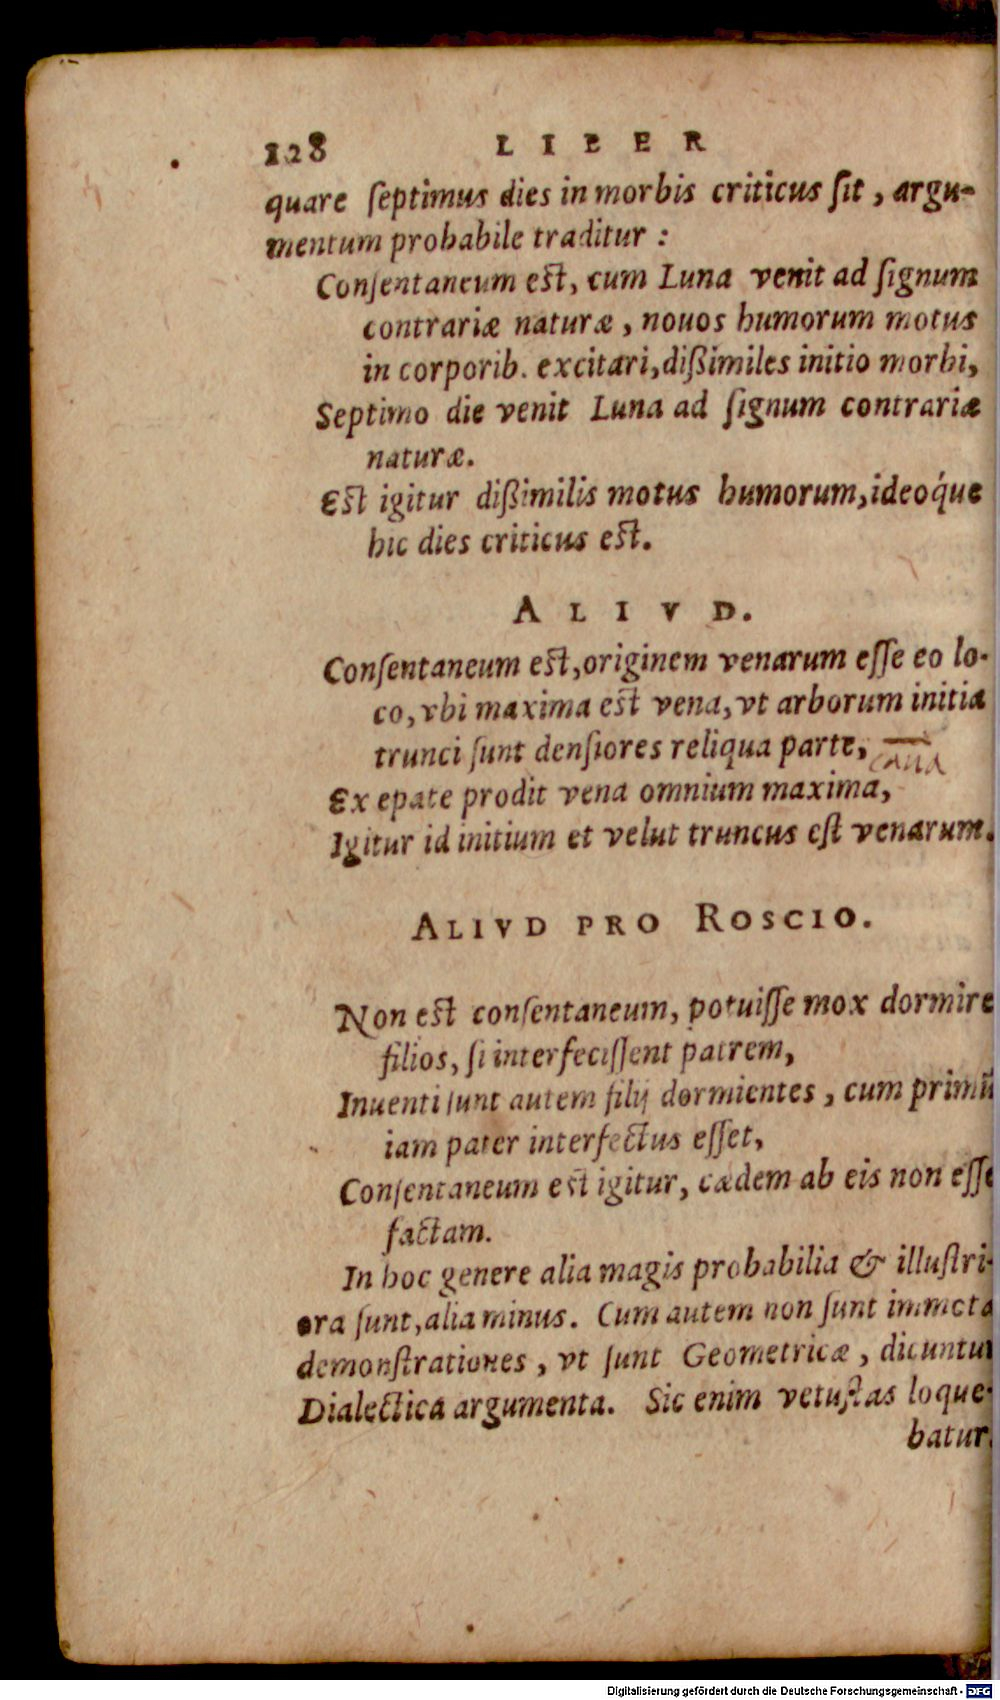 128 LIBER
quare ſeptimus dies in morbis criticus ſit, argu-
mentum probabile traditur:
Conſentaneum est, cum Luna venit ad ſignum
contrariæ naturæ, nouos humorum motus
in corporib. excitari, dißimiles initio morbi,
Septimo die venit Luna ad ſignum contrariæ
naturæ.
Est igitur dißimilis motus humorum, ideoq́ue
hic dies criticus est.
ALIVD.
Conſentaneum est, originem venarum eſſe eo lo-
co, vbi maxima est vena, vt arborum initia
trunci ſunt denſiores reliqua parte,
caua
Ex epate prodit vena omnium maxima,
Igitur id initium et velut truncus eſt venarum.
ALIVD PRO ROSCIO.
Non est conſentaneum, potuiſſe mox dormire
filios, ſi interfeciſſent patrem,
Inuenti ſunt autem filij dormientes, cum primū
iam pater interfectus eſſet,
Conſentaneum est igitur, cædem ab eis non eſſe
factam.
In hoc genere alia magis probabilia & illuſtri-
ora ſunt, alia minus. Cum autem non ſunt immota
demonſtrationes, vt ſunt Geometricæ, dicuntur
Dialectica argumenta. Sic enim vetuſtas loque-
batur.
Digitalisierung gefördert durch die Deutsche Forschungsgemeinschaft - DFG